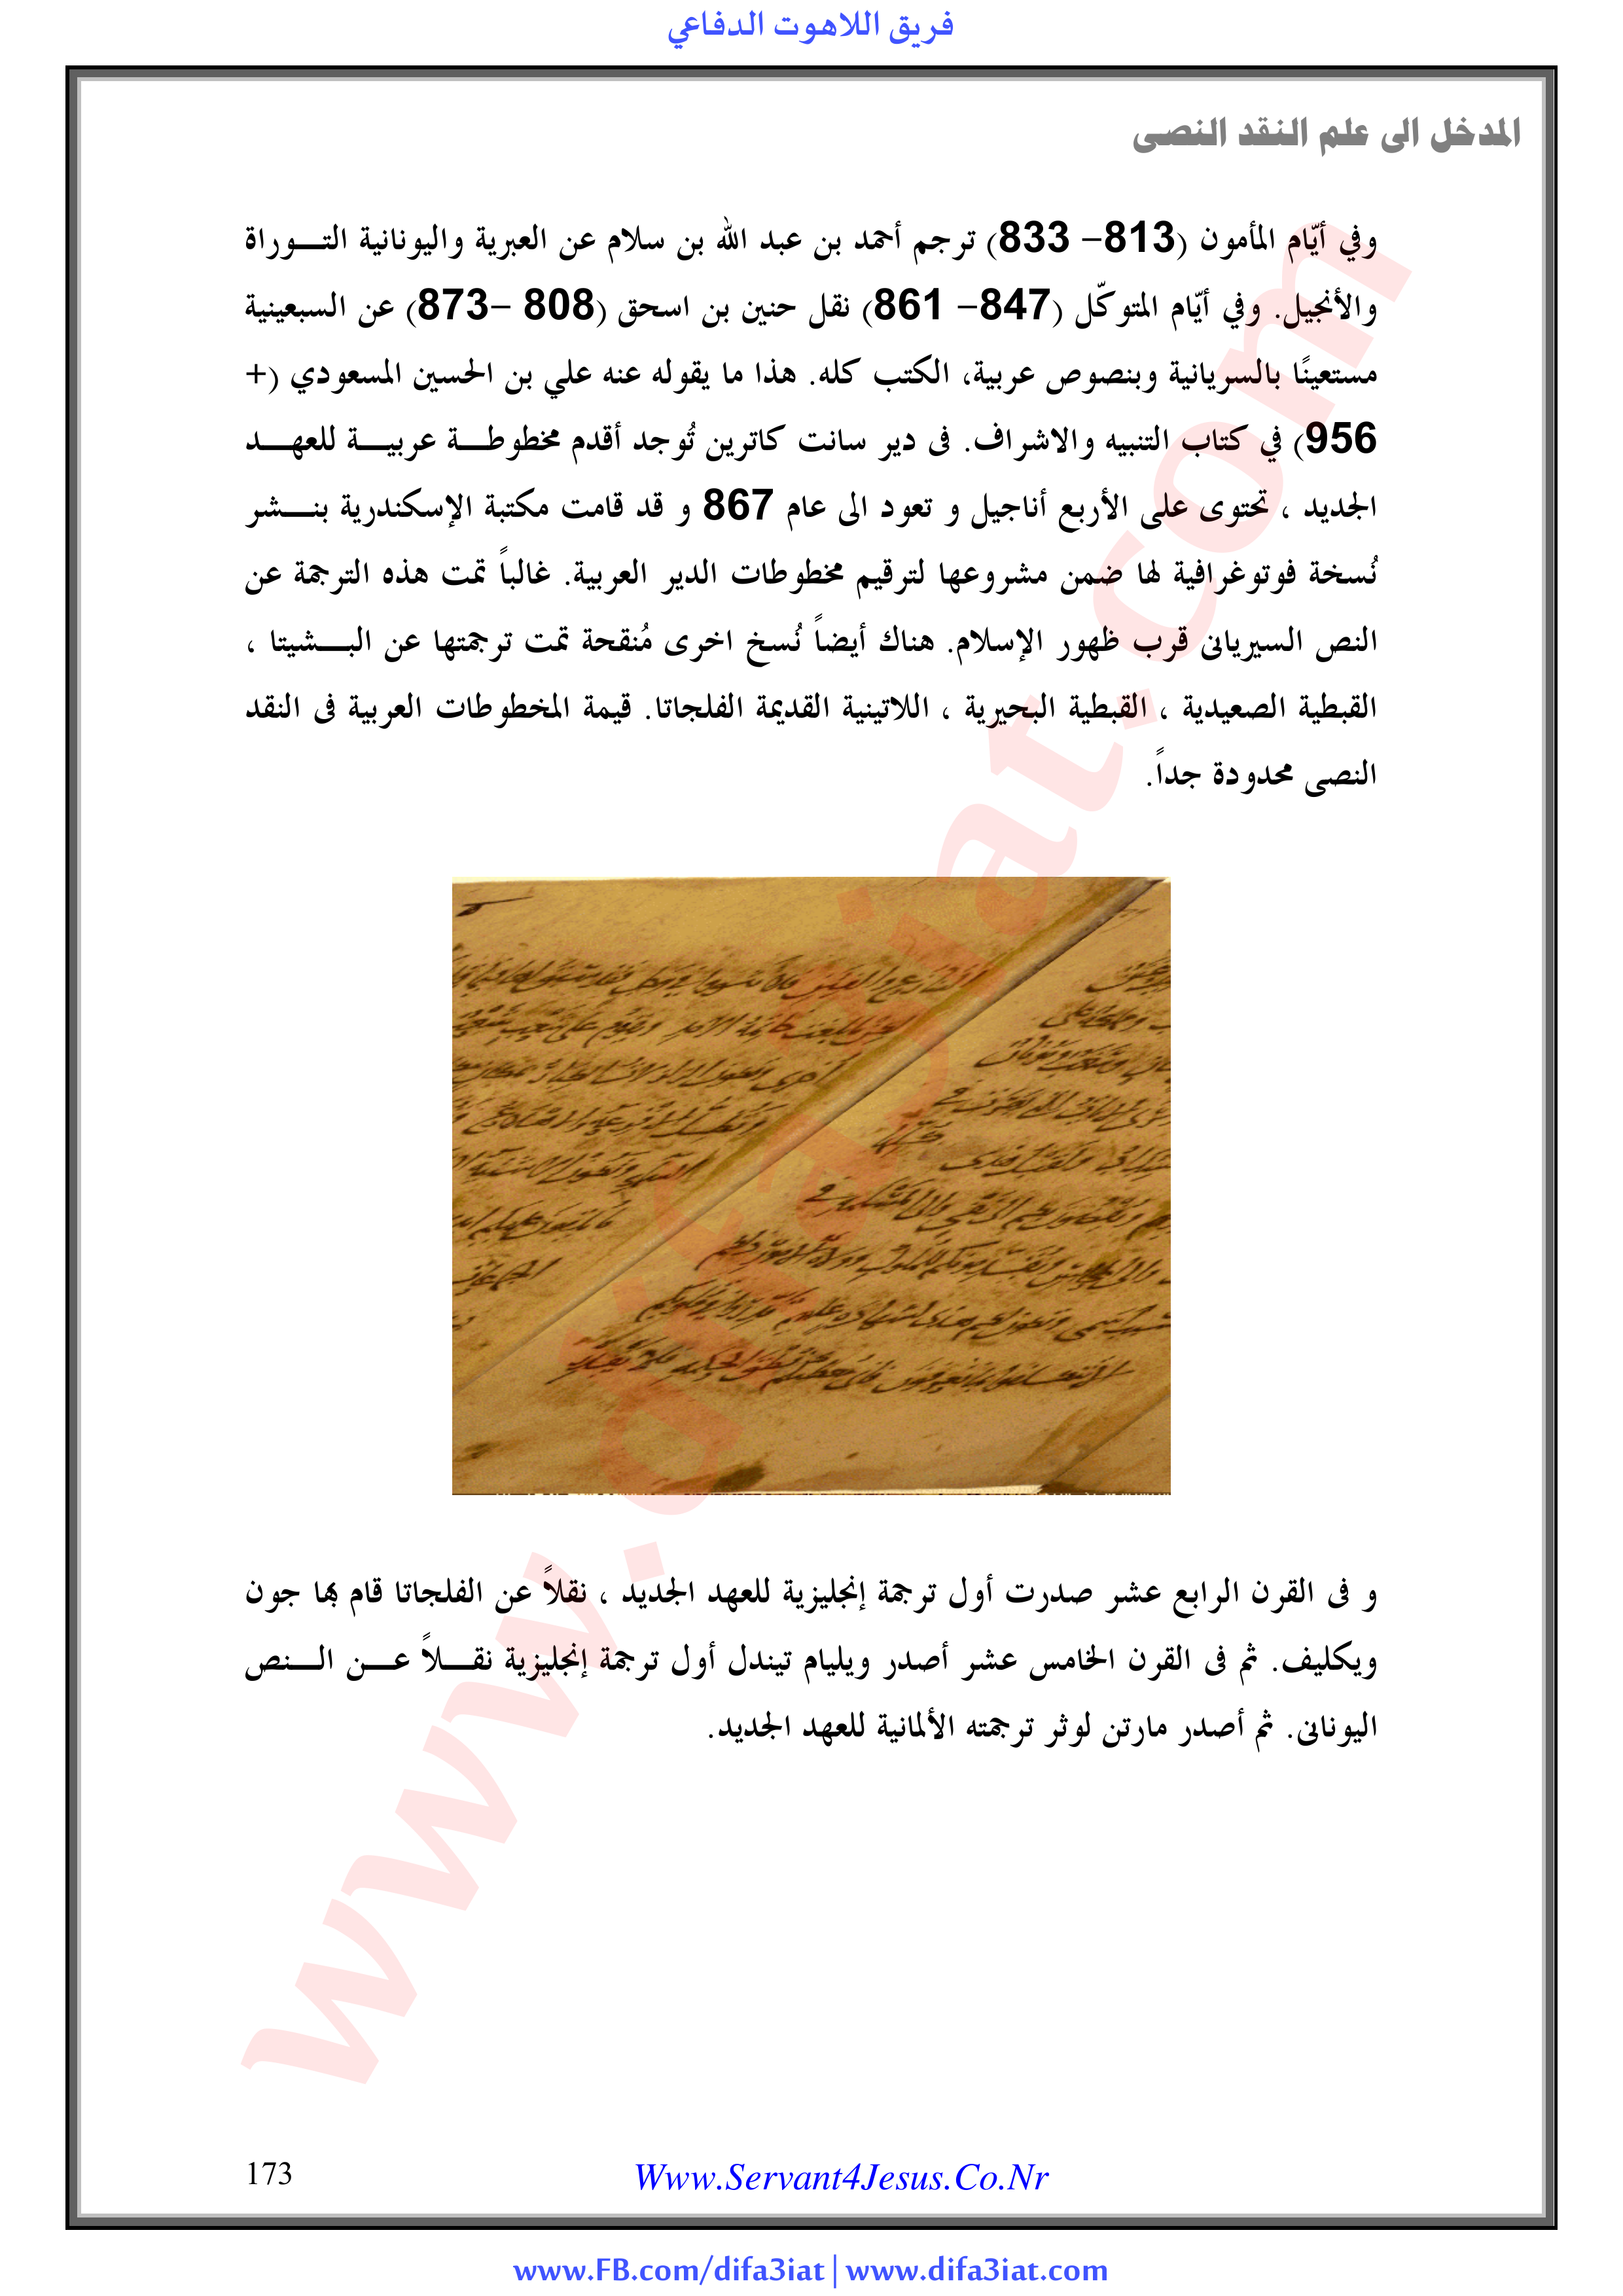 فريق اللاهوت الدفاعي
المدخل الى علم النقد النصى
وفي أيّام المأمون (813– 833) ترجم أحمد بن عبد الله بن سلام عن العبرية واليونانية التـــوراة
والأنجيل. وفي أيّام المتوكّل (847– 861) نقل حنين بن اسحق (808 –873) عن السبعينية
مستعينًا بالسريانية وبنصوص عربية، الكتب كله. هذا ما يقوله عنه علي بن الحسين المسعودي (+
956) في كتاب التنبيه والاشراف. فى دير سانت كاترين تُوجد أقدم مخطوطـــة عربيـــة للعهـــد
الجديد ، تحتوى على الأربع أناجيل و تعود الى عام 867 و قد قامت مكتبة الإسكندرية بنـــشر
نُسخة فوتوغرافية لها ضمن مشروعها لترقيم مخطوطات الدير العربية. غالباً تمت هذه الترجمة عن
النص السيريانى قرب ظهور الإسلام. هناك أيضاً نُسخ اخرى مُنقحة تمت ترجمتها عن البـــشيتا ،
القبطية الصعيدية ، القبطية البحيرية ، اللاتينية القديمة الفلجاتا. قيمة المخطوطات العربية فى النقد
النصى محدودة جداً.
و فى القرن الرابع عشر صدرت أول ترجمة إنجليزية للعهد الجديد ، نقلاً عن الفلجاتا قام بها جون
ويكليف. ثم فى القرن الخامس عشر أصدر ويليام تيندل أول ترجمة إنجليزية نقـــلاً عـــن الـــنص
اليونانى. ثم أصدر مارتن لوثر ترجمته الألمانية للعهد الجديد.
www.difa3iat.com
173
Www.Servant4Jesus.Co.Nr
www.FB.com/difa3iat | www.difa3iat.com